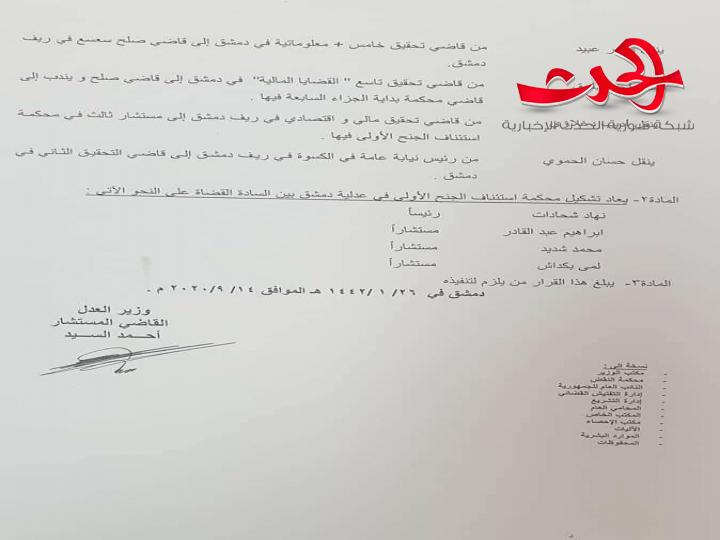 ينقل عبيد من قاضي تحقيق خامس + معلوماتية في دمشق إلى قاضي صلح سعسع في ريف
دمشق.
من قاضي تحقيق تاسع " القضايا المالية" في دمشق إلى قاضي صلح و يندب إلى
قاضي محكمة بداية الجزاء السابعة فيها .
من قاضي تحقيق مالي و اقتصادي في ريف دمشق إلى مستشار ثالث في محكمة
استئناف الجنح الأولى فيها .
الحدث
شبكة سورية الحدث الإخبارية
ينقل حسان الحموي من رئيس نيابة عامة في الكسوة في ريف دمشق إلى قاضي التحقيق الثاني في
دمشق .
المادة٢- يعاد تشكيل محكمة استئناف الجنح الأولى في عدلية دمشق بين السادة القضاة على النحو الآتي :
نهاد شحادات رئيساً
ابراهيم عبد القادر مستشاراً
محمد شديد مستشاراً
لمى بكداش مستشاراً
المادة٣- يبلغ هذا القرار من يلزم لتنفيذه
دمشق في ٢٦/ ١ /١٤٤٢ هـ الموافق ١٤/ ٩/ ٢٠٢٠ م .
وزير العدل
القاضي المستشار
أحــمد الســـيد
نسخة إلى :
- مكتب الوزير
- محكمة النقض
- النائب العام للجمهورية
- إدارة التفتيش القضائي
- إدارة التشريع
- المحامي العام
- المكتب الخاص
- مكتب الإحصاء
- الآليات
- الموارد البشرية
- المحفوظات